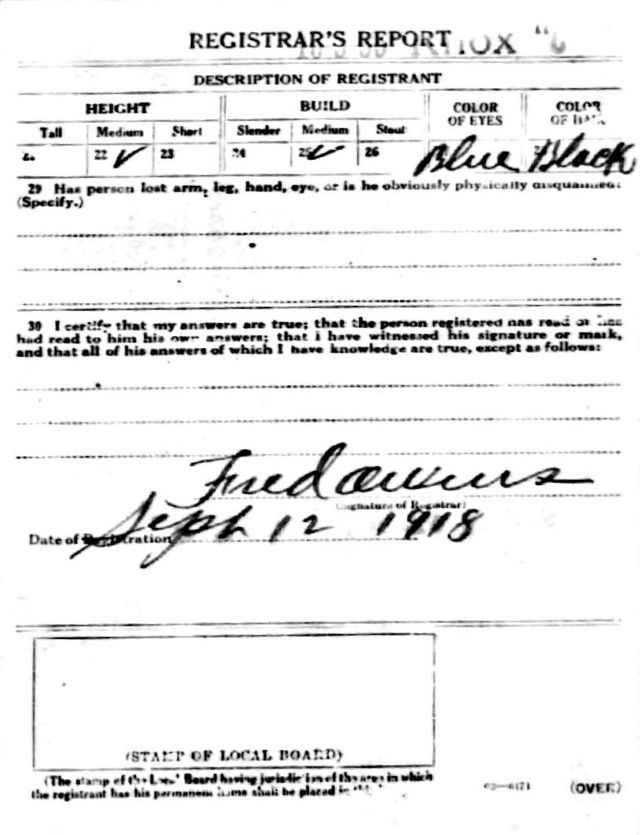 REGISTRAR'S REPORT
DESCRIPTION OF REGISTRANT
HEIGHT BUILD COLOR OF EYES COLOR OF
Tall Medium Short Slender Medium Stout
22 ✓ 23 24 25 ✓ 26 Blue Black
29 Has person lost arm, leg, hand, eye, or is he obviously physically
(Specify.)
30 I certify that my answers are true; that the person registered has read or has
had read to him his own answers; that I have witnessed his signature or mark,
and that all of his answers of which I have knowledge are true, except as follows:
Fred
(Signature of Registrar)
Date of Registration Sept 12 1918
(STAMP OF LOCAL BOARD)
(The stamp of the Local Board having jurisdiction of the area in which
the registrant has his permanent home shall be placed in
(OVER)